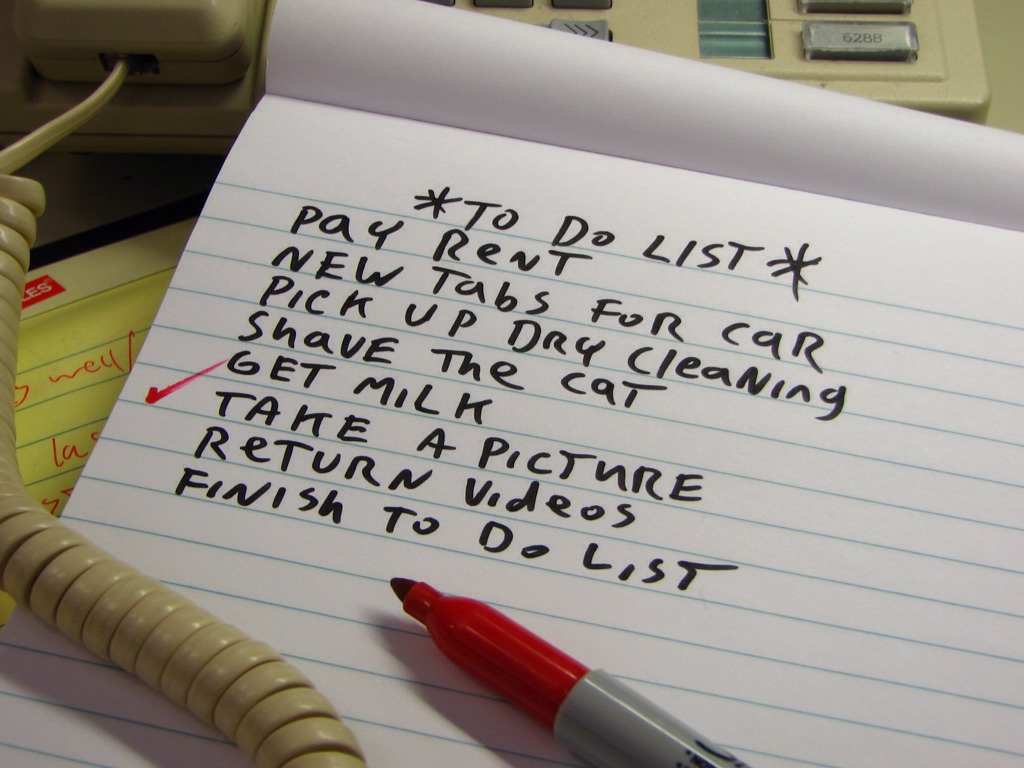 *TO DO LIST*
PAY RENT
NEW TABS FOR CAR
PICK UP DRY CLEANING
SHAVE THE CAT
GET MILK
TAKE A PICTURE
RETURN VIDEOS
FINISH TO DO LIST
6288
well